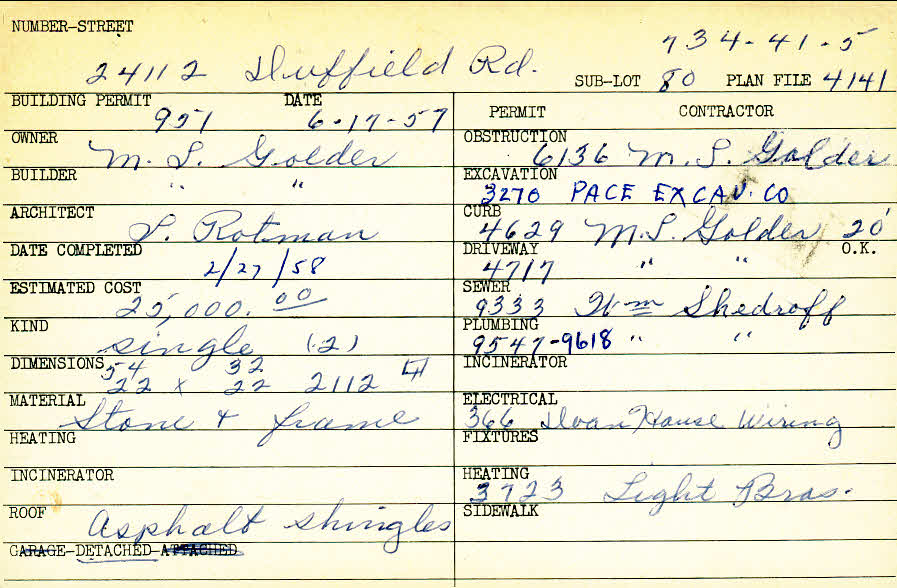 NUMBER-STREET
734-41-5
24112 Duffield Rd.
SUB-LOT 80 PLAN FILE 4141
BUILDING PERMIT DATE
951 6-17-57
OWNER
M. L. Golder
BUILDER
" "
ARCHITECT
S. Rotman
DATE COMPLETED
2/27/58
ESTIMATED COST
25,000.00
KIND
single (2)
DIMENSIONS
54 32
22 x 22 2112
MATERIAL
Stone + frame
HEATING
INCINERATOR
ROOF
Asphalt shingles
GARAGE-DETACHED-ATTACHED
PERMIT CONTRACTOR
OBSTRUCTION
6136 M. L. Golder
EXCAVATION
3270 PACE EXCAV. CO
CURB
4629 M. L. Golder 20'
DRIVEWAY O.K.
4717 " "
SEWER
9333 Wm Shedroff
PLUMBING
9547-9618 " "
INCINERATOR
ELECTRICAL
366 House Wiring
FIXTURES
HEATING
3723 Light Bros.
SIDEWALK